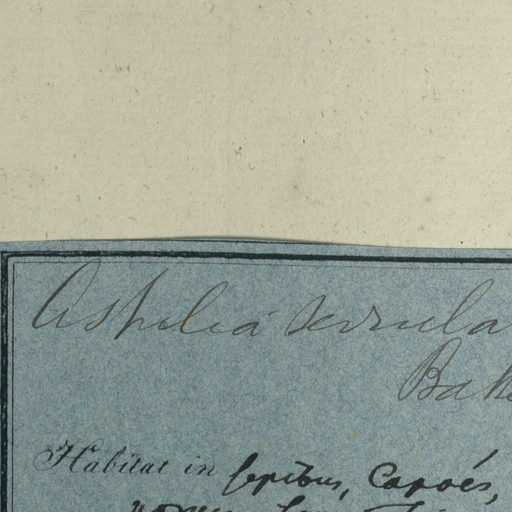 Aspilia serrula
Bak
Habitat in sepibus, Capoés,